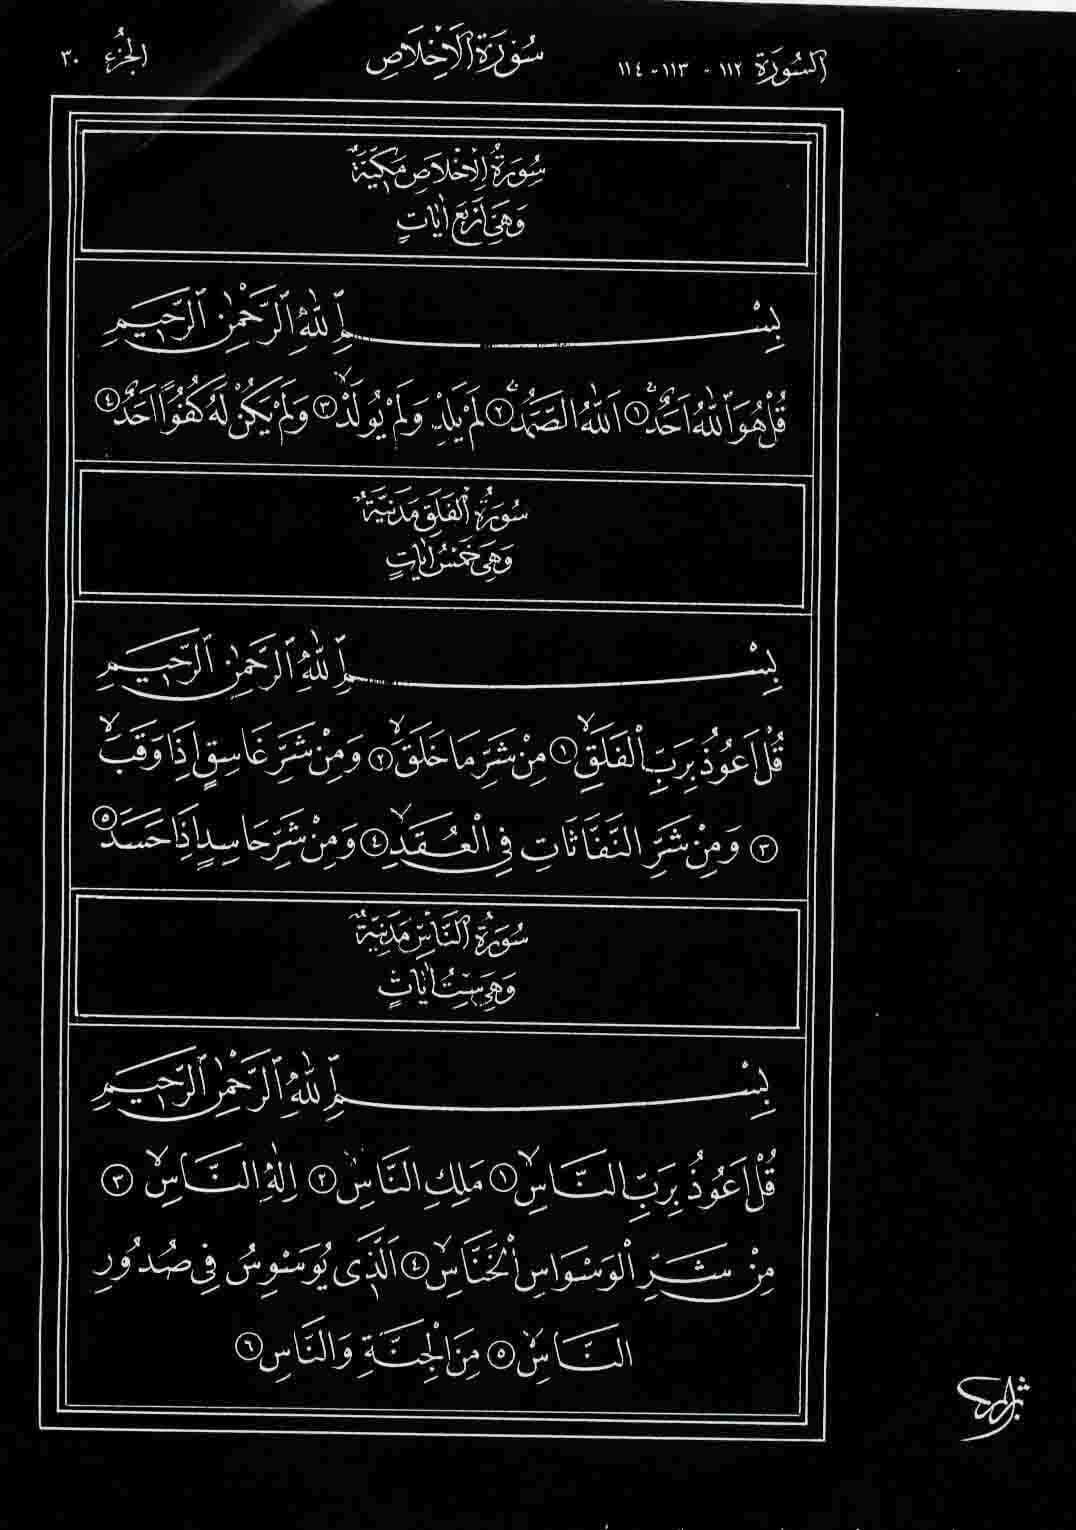 السورة ١١٢ - ١١٣ - ١١٤ سورة الاخلاص الجزء ٣٠
سُورَةُ الِاخْلَاصِ مَكِّيَّةٌ
وَهِىَ اَرْبَعُ اٰيَاتٍ
بِسْمِ اللّٰهِ الرَّحْمٰنِ الرَّحٖيمِ
قُلْ هُوَ اللّٰهُ اَحَدٌ ﴿١﴾ اَللّٰهُ الصَّمَدُ ﴿٢﴾ لَمْ يَلِدْ وَلَمْ يُولَدْ ﴿٣﴾ وَلَمْ يَكُنْ لَهُ كُفُوًا اَحَدٌ ﴿٤﴾
سُورَةُ الْفَلَقِ مَدَنِيَّةٌ
وَهِىَ خَمْسُ اٰيَاتٍ
بِسْمِ اللّٰهِ الرَّحْمٰنِ الرَّحٖيمِ
قُلْ اَعُوذُ بِرَبِّ الْفَلَقِ ﴿١﴾ مِنْ شَرِّ مَا خَلَقَ ﴿٢﴾ وَمِنْ شَرِّ غَاسِقٍ اِذَا وَقَبَ
﴿٣﴾ وَمِنْ شَرِّ النَّفَّاثَاتِ فِى الْعُقَدِ ﴿٤﴾ وَمِنْ شَرِّ حَاسِدٍ اِذَا حَسَدَ ﴿٥﴾
سُورَةُ النَّاسِ مَدَنِيَّةٌ
وَهِىَ سِتُّ اٰيَاتٍ
بِسْمِ اللّٰهِ الرَّحْمٰنِ الرَّحٖيمِ
قُلْ اَعُوذُ بِرَبِّ النَّاسِ ﴿١﴾ مَلِكِ النَّاسِ ﴿٢﴾ اِلٰهِ النَّاسِ ﴿٣﴾
مِنْ شَرِّ الْوَسْوَاسِ الْخَنَّاسِ ﴿٤﴾ اَلَّذٖى يُوَسْوِسُ فٖى صُدُورِ
النَّاسِ ﴿٥﴾ مِنَ الْجِنَّةِ وَالنَّاسِ ﴿٦﴾